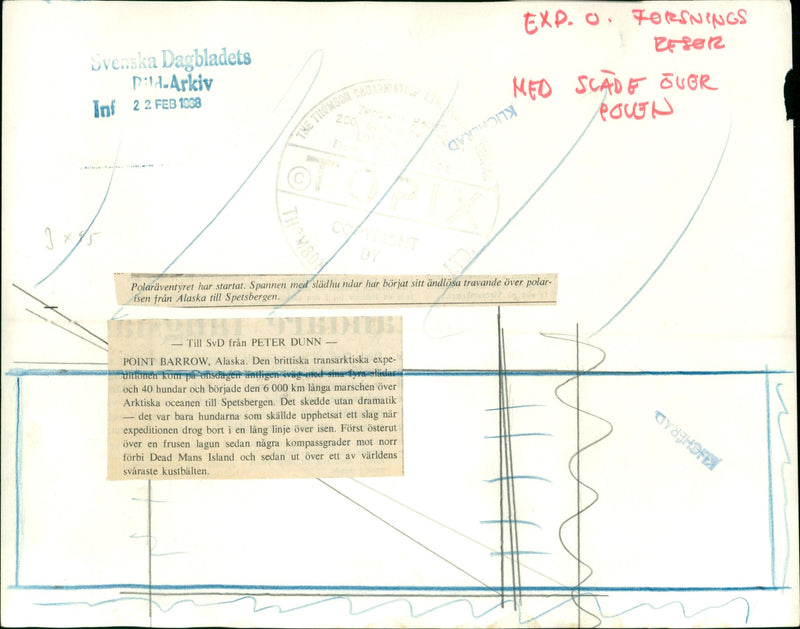 EXP. O. FORSNINGS
RESOR
MED SLÄDE ÖVER
POLEN
Svenska Dagbladets
Bild-Arkiv
Inf 22 FEB 1968
KLICHERAD
THE THOMSON
TOPIX
©
COPYRIGHT
BY
THOMSON
Polaräventyret har startat. Spannen med slädhu ndar har börjat sitt ändlösa travande över polar-
isen från Alaska till Spetsbergen.
— Till SvD från PETER DUNN —
POINT BARROW, Alaska. Den brittiska transarktiska expe-
ditionen kom på onsdagen äntligen iväg med sina fyra slädar
och 40 hundar och började den 6 000 km långa marschen över
Arktiska oceanen till Spetsbergen. Det skedde utan dramatik
— det var bara hundarna som skällde upphetsat ett slag när
expeditionen drog bort i en lång linje över isen. Först österut
över en frusen lagun sedan några kompassgrader mot norr
förbi Dead Mans Island och sedan ut över ett av världens
svåraste kustbälten.
KLICHERAD